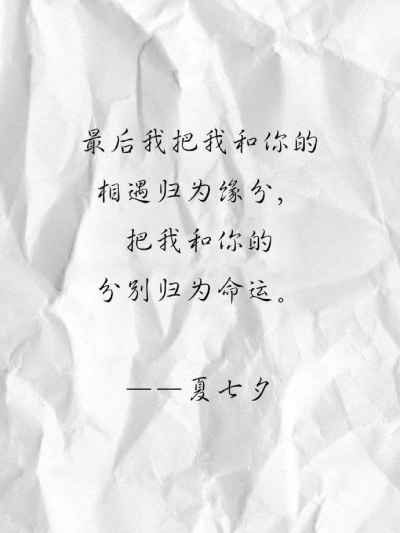 最后我把我和你的
相遇归为缘分，
把我和你的
分别归为命运。
——夏七夕